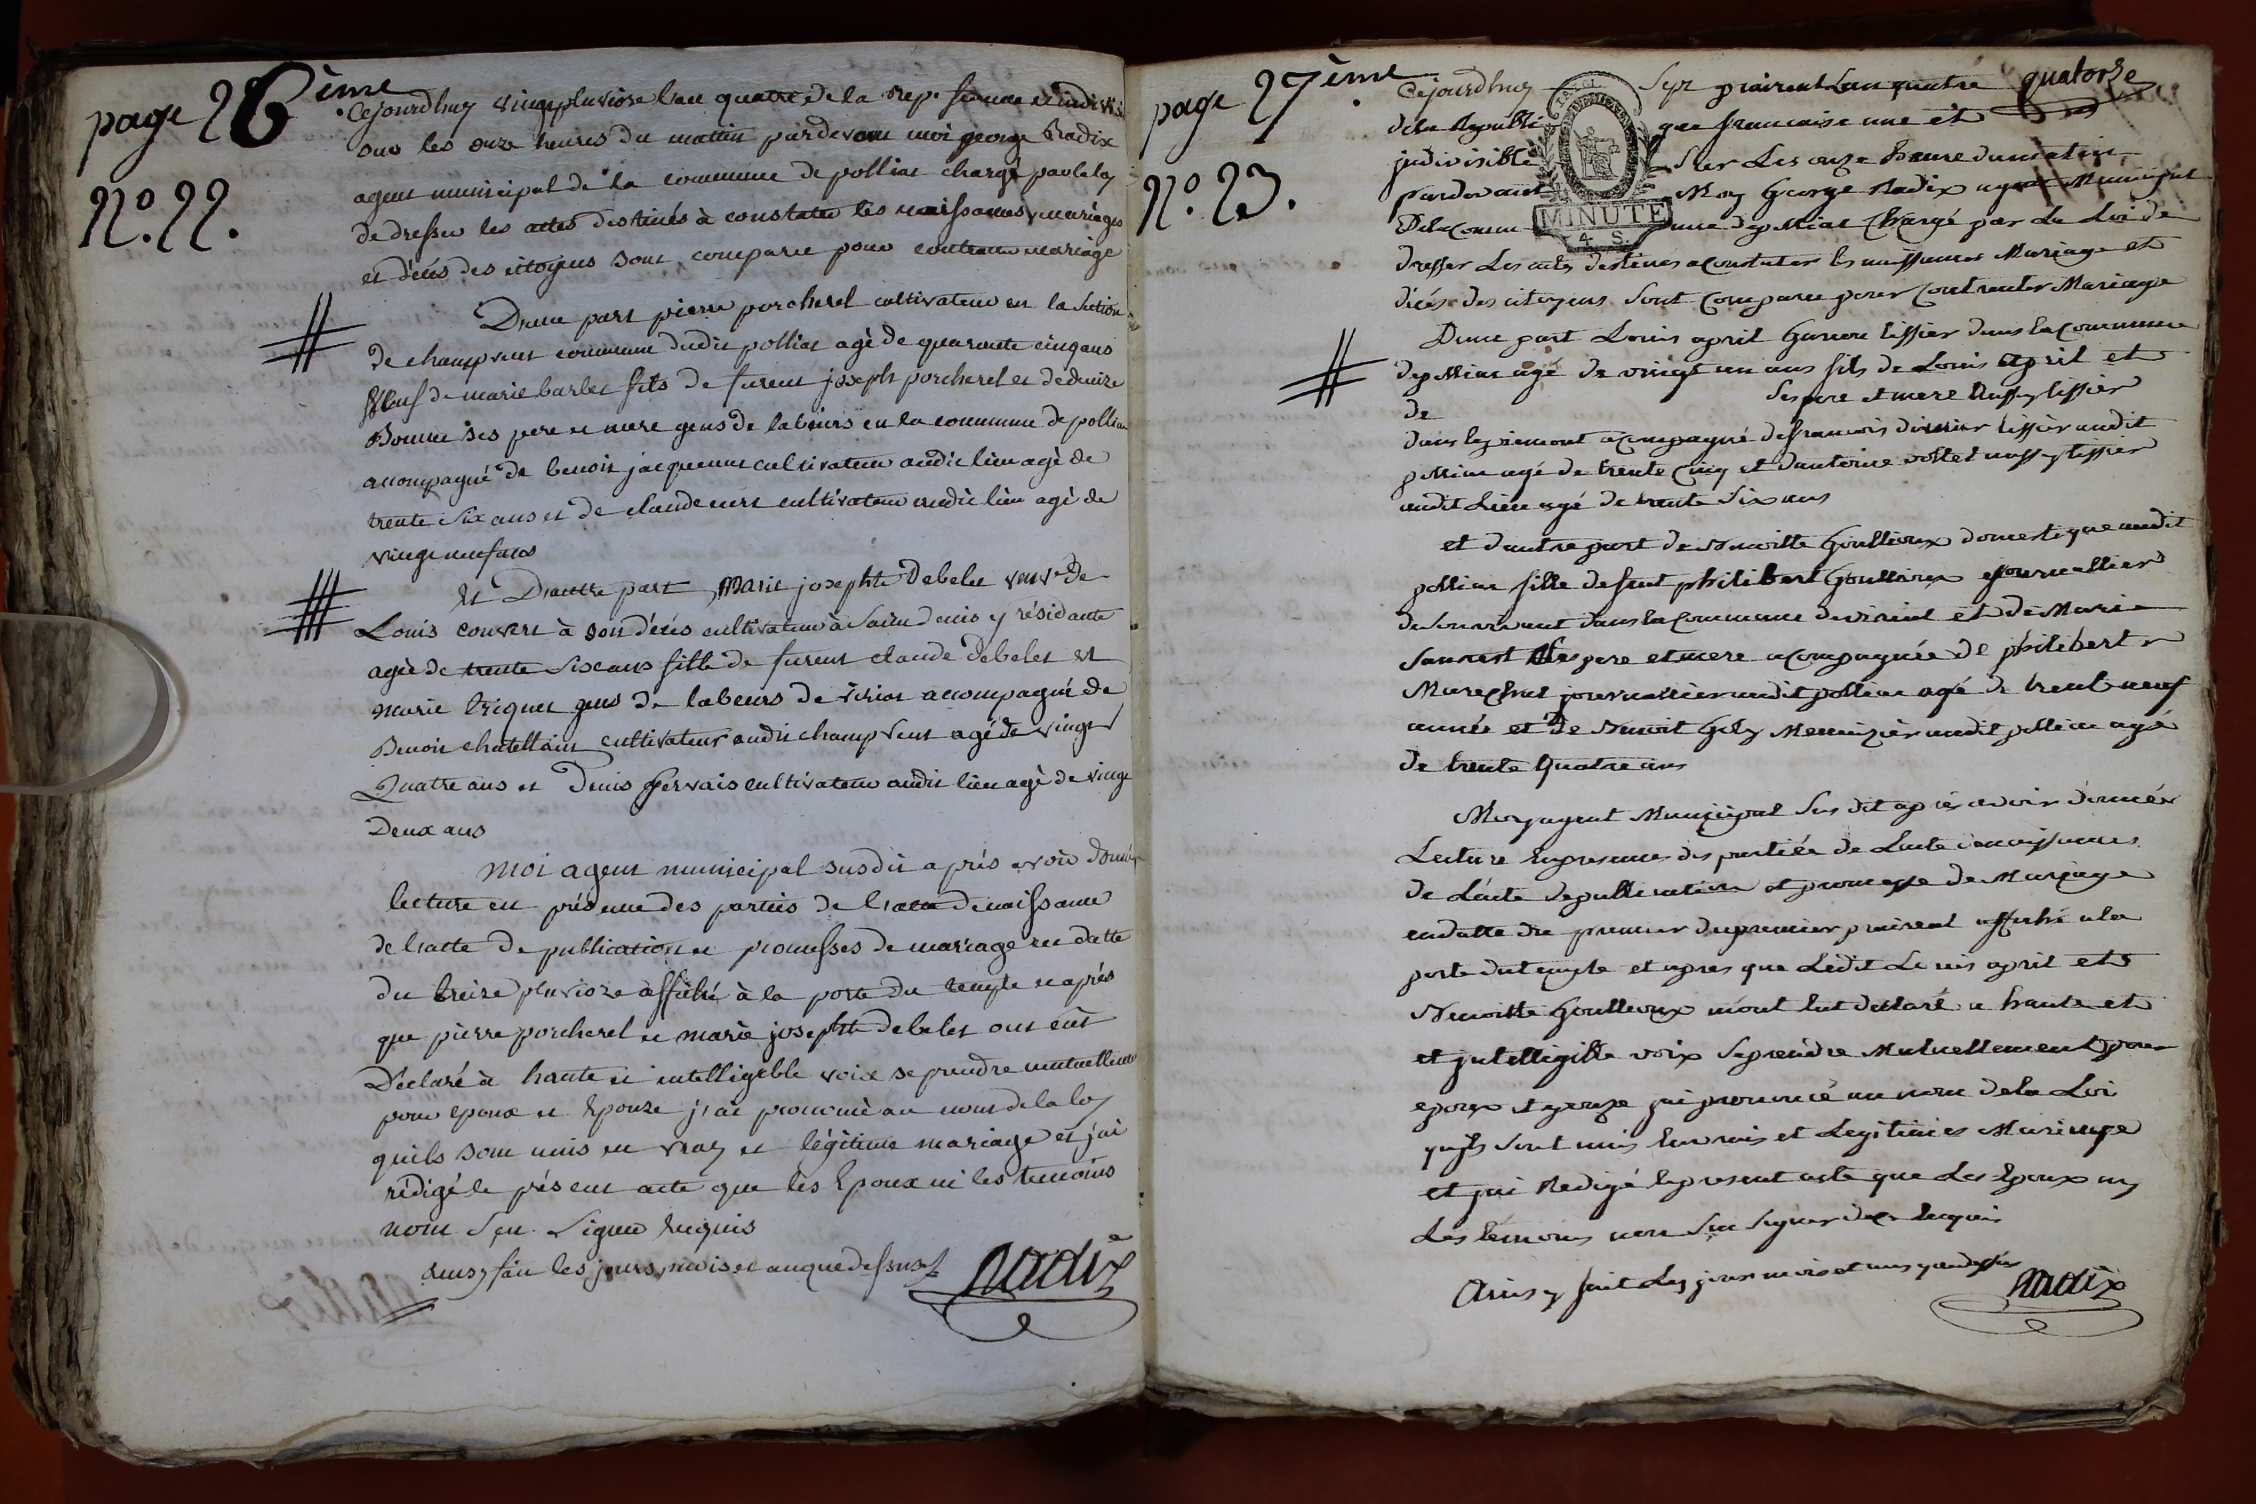 page 26ème
N.º 22.
Cejourdhuy vingt pluviose l'an quatre de la rep. francaise et indivisi
sur les onze heures du mattin pardevant moi george Radix
agent municipal de la commune de polliat chargé par la loy
de dresser les actes destinés à constater les naissances mariages
et décès des citoyens sont comparu pour contracter mariage
D'une part pierre porcherel cultivateur en la section
de champvent commune dudit polliat agé de quarante cinq ans
veuf de marie barbet fils de furent joseph porcherel et de denize
Bonne ses pere et mere gens de labeurs en la commune de polliat
acompagné de benoit jacquemet cultivateur audit lieu agé de
trente six ans et de claude cultivateur audit lieu agé de
vingt neuf ans
Et D'autre part Marie josephte Debelet veuve de
Louis convert à son décés cultivateur à Saint denis y résidante
agée de trente six ans fille de furent claude Debelet et
marie gens de labeurs de viriat acompagné de
Benoit chatellain cultivateur audit champvent agé de vingt
Quatre ans et Denis gervais cultivateur audit lieu agé de vingt
Deux ans
moi agent municipal susdit après avoir donné
lecture en présence des parties de l'acte de naissance
de l'actte de publication et promesses de mariage en datte
du treize pluvioze affiché à la porte du temple et après
que pierre porcherel et marie josephte debelet ont eut
Déclaré à haute et intelligeble voix se prendre mutuellement
pour epoux et Epouze j'ai prononcé au nom de la loy
quils sont unis en vray et légitime mariage et j'ai
rédigé le présent acte que les Epoux ni les temoins
nont sçu signer Enquis
ainsy fait les jours, mois et an que dessus
Radix
page 27ème
N.º 23.
quatorze
MINUTE
4. S.
Cejourdhuy Sept prairial Lan quatre
de la Republi que francaise une et
indivisible Sur Les onze heure du matin
pardevant Moy George Radix agent Municipal
De la Comm une de polliat Chargé par La Loi de
dresser Les actes destines a constater les naissances Mariage et
dicés des citoyens Sont Comparu pour Contracter Mariage
Dune part Louis april Garcon tissier dans la Commune
de polliat agé de vingt un ans fils de Louis april et
de Ses pere et mere Aussy tissier
dans le piemont acompagné de francois tissier audit
polliat agé de trente cinq et dantoine vollet aussy tissier
audit Lieu agé de trente Six ans
et dautre part de Benoitte Goulleoux domestique audit
polliat fille de feut philibert Goulleoux journallier
de Son vivant dans la Commune de viriat et de Marie
Ses pere et mere acompagnée de philibert
Marechal journallier audit polliat agé de trent neuf
année et de Benoit Gely Menuizier audit polliat agé
de trente Quatre ans
Moy agent Municipal Sus dit après avoir donnée
Lecture En presence des partiée de Lacte de naissances
de Lacte de publication et promesse de Mariage
en datte du premier du premier prairial affiché a la
porte du temple et apres que Ledit Louis april et
Benoitte Goulleoux mont but declaré a haute et
et jntelligible voix Se prendre Mutuellement pour
epoux et epouze jai prononcé au nom de la Loi
quils Sont unis En vrais et Legitimes Mariage
et jai Redigé le present acte que Les Epoux ny
Les temoins non Sçu Signer de Ce Enquis
Ainsy fait Les jours mois et ans que dessus
Radix